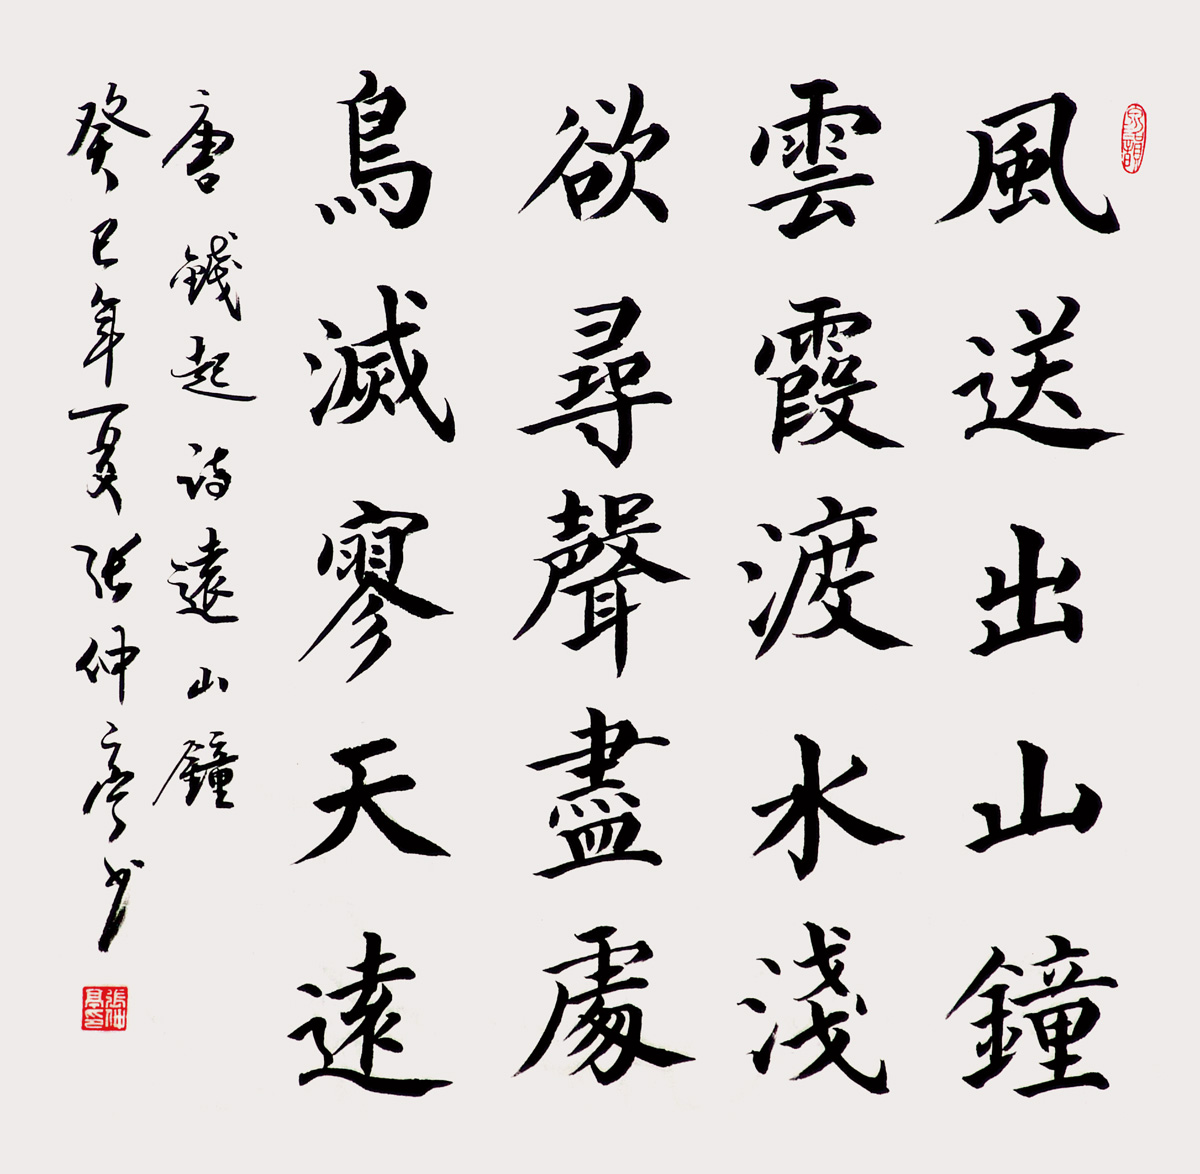 風送出山鐘
雲霞渡水淺
欲尋聲盡處
鳥滅寥天遠
唐錢起詩遠山鐘
癸巳年夏張仲亭书
張仲亭印